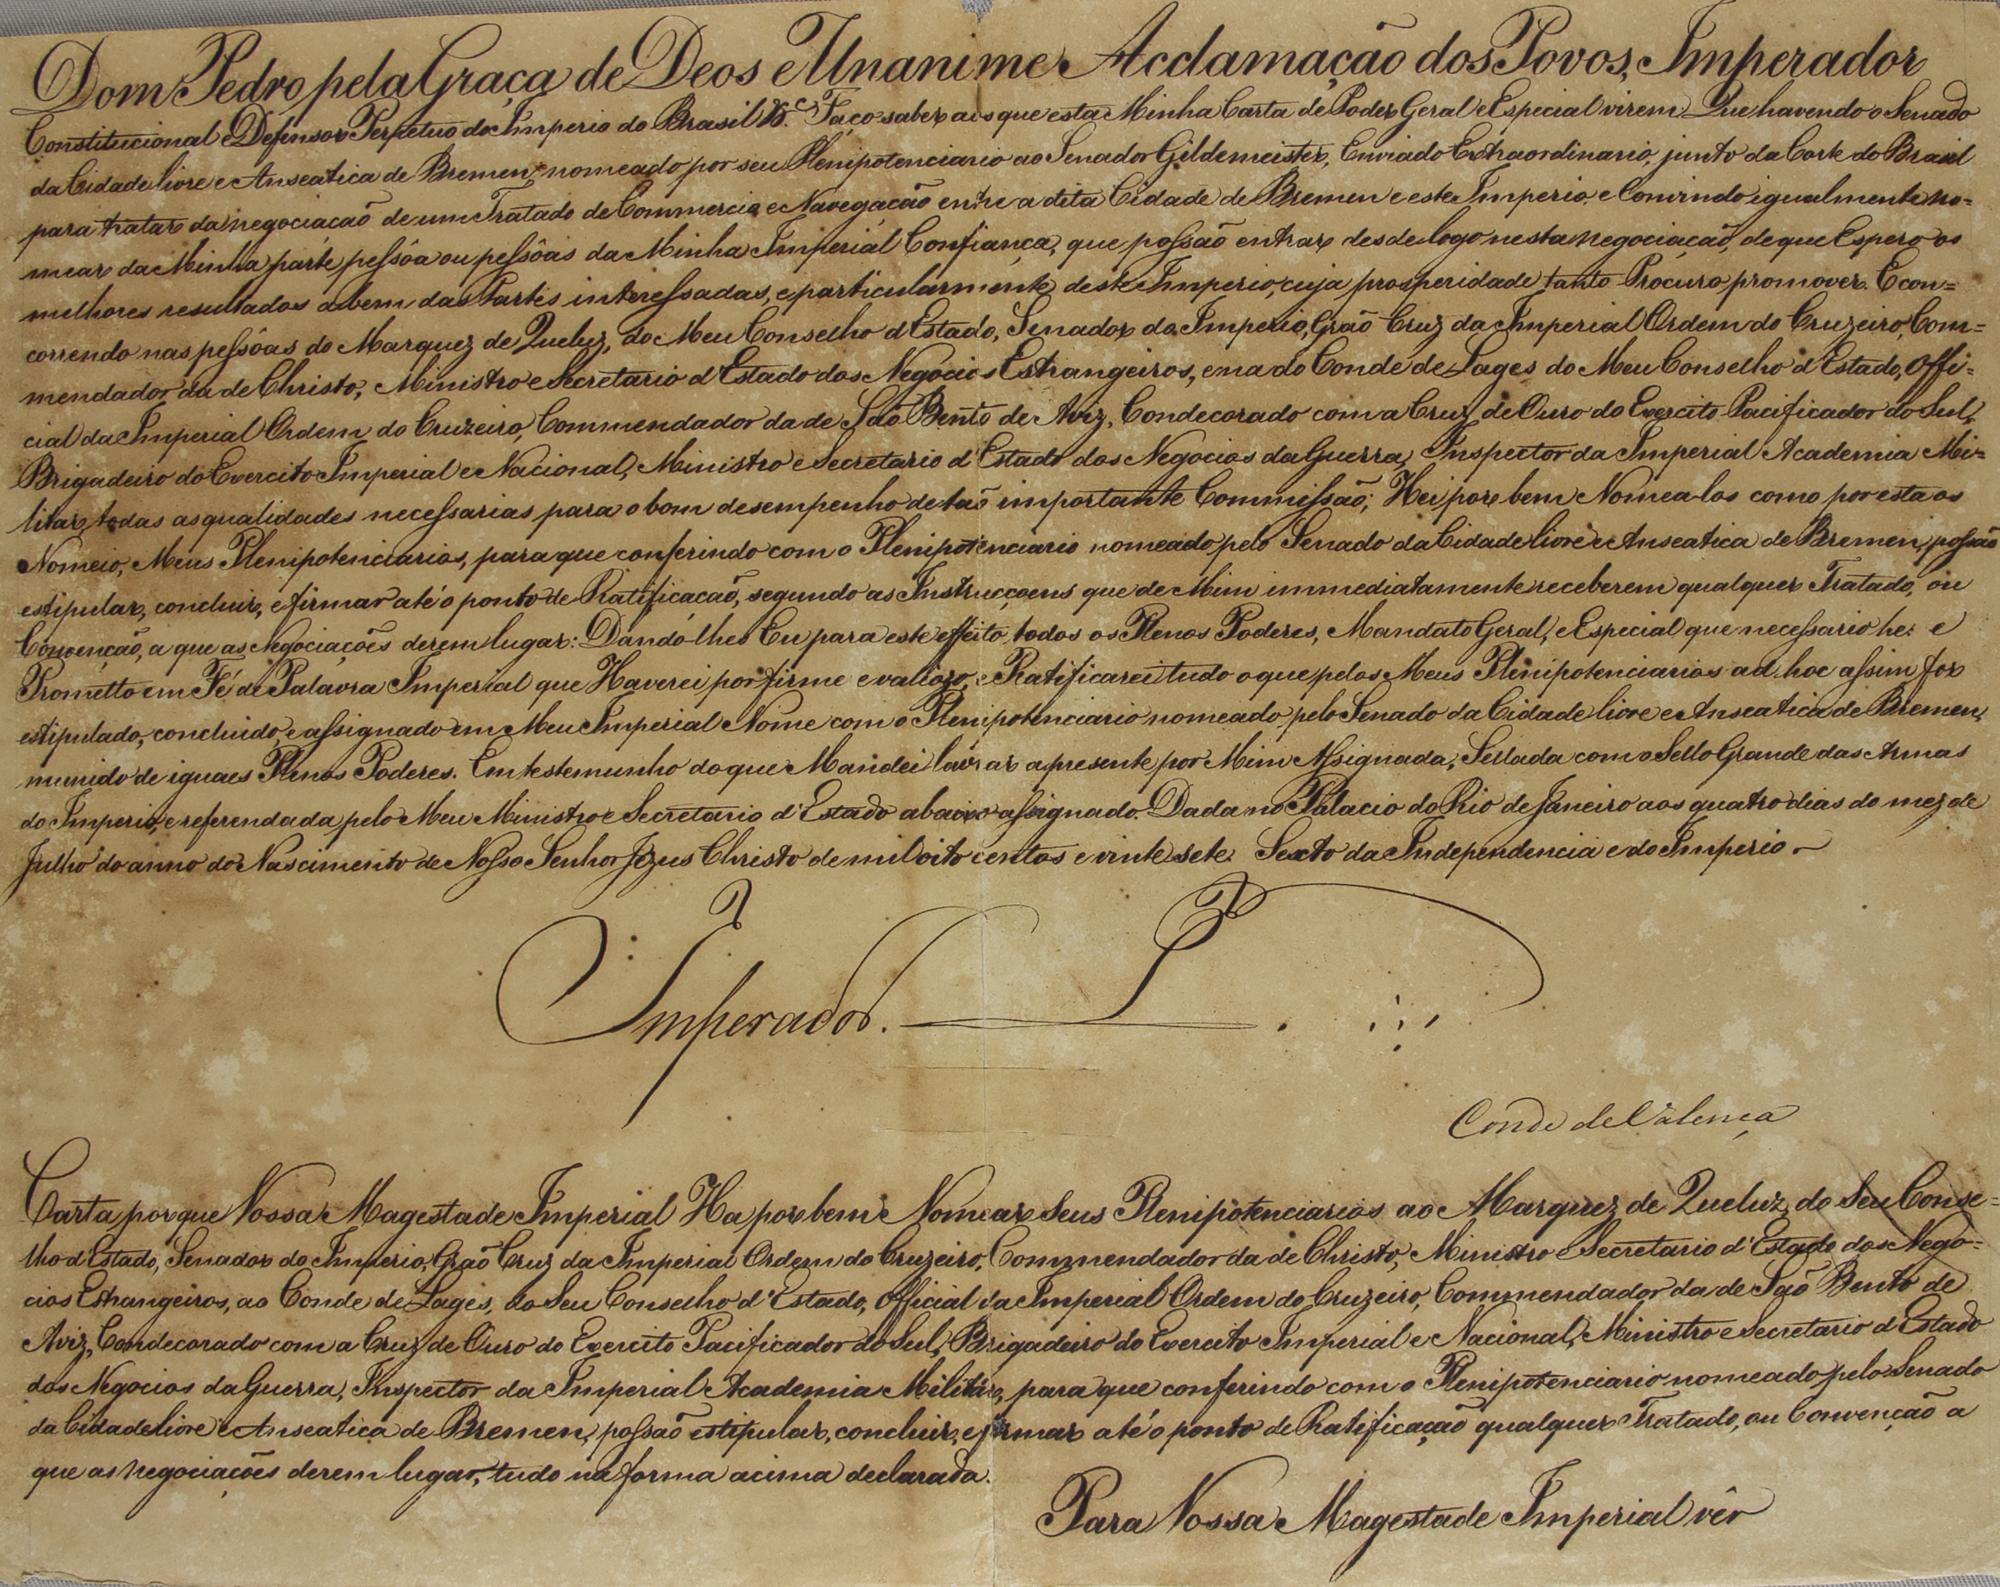 Dom Pedro pela Graça de Deos e Unanime Acclamação dos Povos, Imperador
Constitucional e Defensor Perpetuo do Imperio do Brasil &c. Faço saber aos que esta Minha Carta de Poder Geral e Especial virem Que havendo o Senado
da Cidade livre e Anseatica de Bremen, nomeado por seu Plenipotenciario ao Senador Gildemeister, Enviado Extraordinario, junto da Corte do Brasil
para tratar da negociacaõ de um Tratado de Commercio e Navegacaõ entre a dita Cidade de Bremen e este Imperio, e Convindo igualmente no=
mear da Minha parte pessôa ou pessôas da Minha Imperial Confiança, que possão entrar desde logo nesta negociação, de que Espero os
melhores resultados a bem das Partes interessadas, e particularmente deste Imperio, cuja prosperidade tanto Procuro promover. E con=
correndo nas pessôas do Marquez de Queluz, do Meu Conselho d'Estado, Senador do Imperio, Grão Cruz da Imperial Ordem do Cruzeiro, Com=
mendador da de Christo, Ministro e Secretario d'Estado dos Negocios Estrangeiros, e na do Conde de Lages do Meu Conselho d'Estado, Offi=
cial da Imperial Ordem do Cruzeiro, Commendador da de Saõ Bento de Aviz, Condecorado com a Cruz de Ouro do Exercito Pacificador do Sul,
Brigadeiro do Exercito Imperial e Nacional, Ministro e Secretario d'Estado dos Negocios da Guerra, Inspector da Imperial Academia Mi=
litar, todas as qualidades necessarias para o bom desempenho de taõ importante Commissão; Hei por bem Nomea-los como por esta os
Nomeio, Meus Plenipotenciarios, para que conferindo com o Plenipotenciario nomeado pelo Senado da Cidade livre e Anseatica de Bremen, possão
estipular, concluir, e firmar até o ponto de Ratificacaõ, segundo as Instrucçoens que de Mim immediatamente receberem qualquer Tratado, ou
Convenção, a que as Negociações derem lugar: Dando-lhes Eu para este effeito todos os Plenos Poderes, Mandato Geral, e Especial que necessario he: e
Prometto em Fé de Palavra Imperial que Haverei por firme e valiozo, e Ratificarei tudo o que pelos Meus Plenipotenciarios ad hoc assim for
estipulado, concluido, e assignado em Meu Imperial Nome com o Plenipotenciario nomeado pelo Senado da Cidade livre e Anseatica de Bremen,
munido de iguaes Plenos Poderes. Em testemunho do que Mandei lavrar a presente por Mim Assignada, Sellada com o Sello Grande das Armas
do Imperio, e referendada pelo Meu Ministro e Secretario d'Estado abaixo assignado. Dada no Palacio do Rio de Janeiro aos quatro dias do mez de
Julho do anno do Nascimento de Nosso Senhor Jezus Christo de mil oito centos e vinte sete. Sexto da Independencia e do Imperio.
Imperador. P.
Conde de Valença
Carta por que Vossa Magestade Imperial Ha por bem Nomear Seus Plenipotenciarios ao Marquez de Queluz, do Seu Conse=
lho d'Estado, Senador do Imperio, Grão Cruz da Imperial Ordem do Cruzeiro, Commendador da de Christo, Ministro e Secretario d'Estado dos Nego=
cios Estrangeiros, ao Conde de Lages, do Seu Conselho d'Estado, Official da Imperial Ordem do Cruzeiro, Commendador da de Saõ Bento de
Aviz, Condecorado com a Cruz de Ouro do Exercito Pacificador do Sul, Brigadeiro do Exercito Imperial e Nacional, Ministro e Secretario d'Estado
dos Negocios da Guerra, Inspector da Imperial Academia Militar, para que conferindo com o Plenipotenciario nomeado pelo Senado
da Cidade livre e Anseatica de Bremen, possão estipular, concluir, e firmar até o ponto de Ratificação qualquer Tratado, ou Convenção a
que as negociações derem lugar, tudo na forma acima declarada.
Para Vossa Magestade Imperial vêr